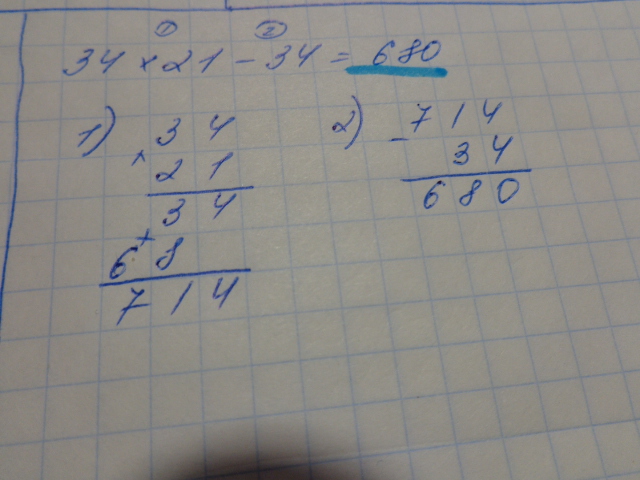 ① ②
34 × 21 - 34 = 680
1) 34
× 21
34
+ 68
714
2) 714
- 34
680